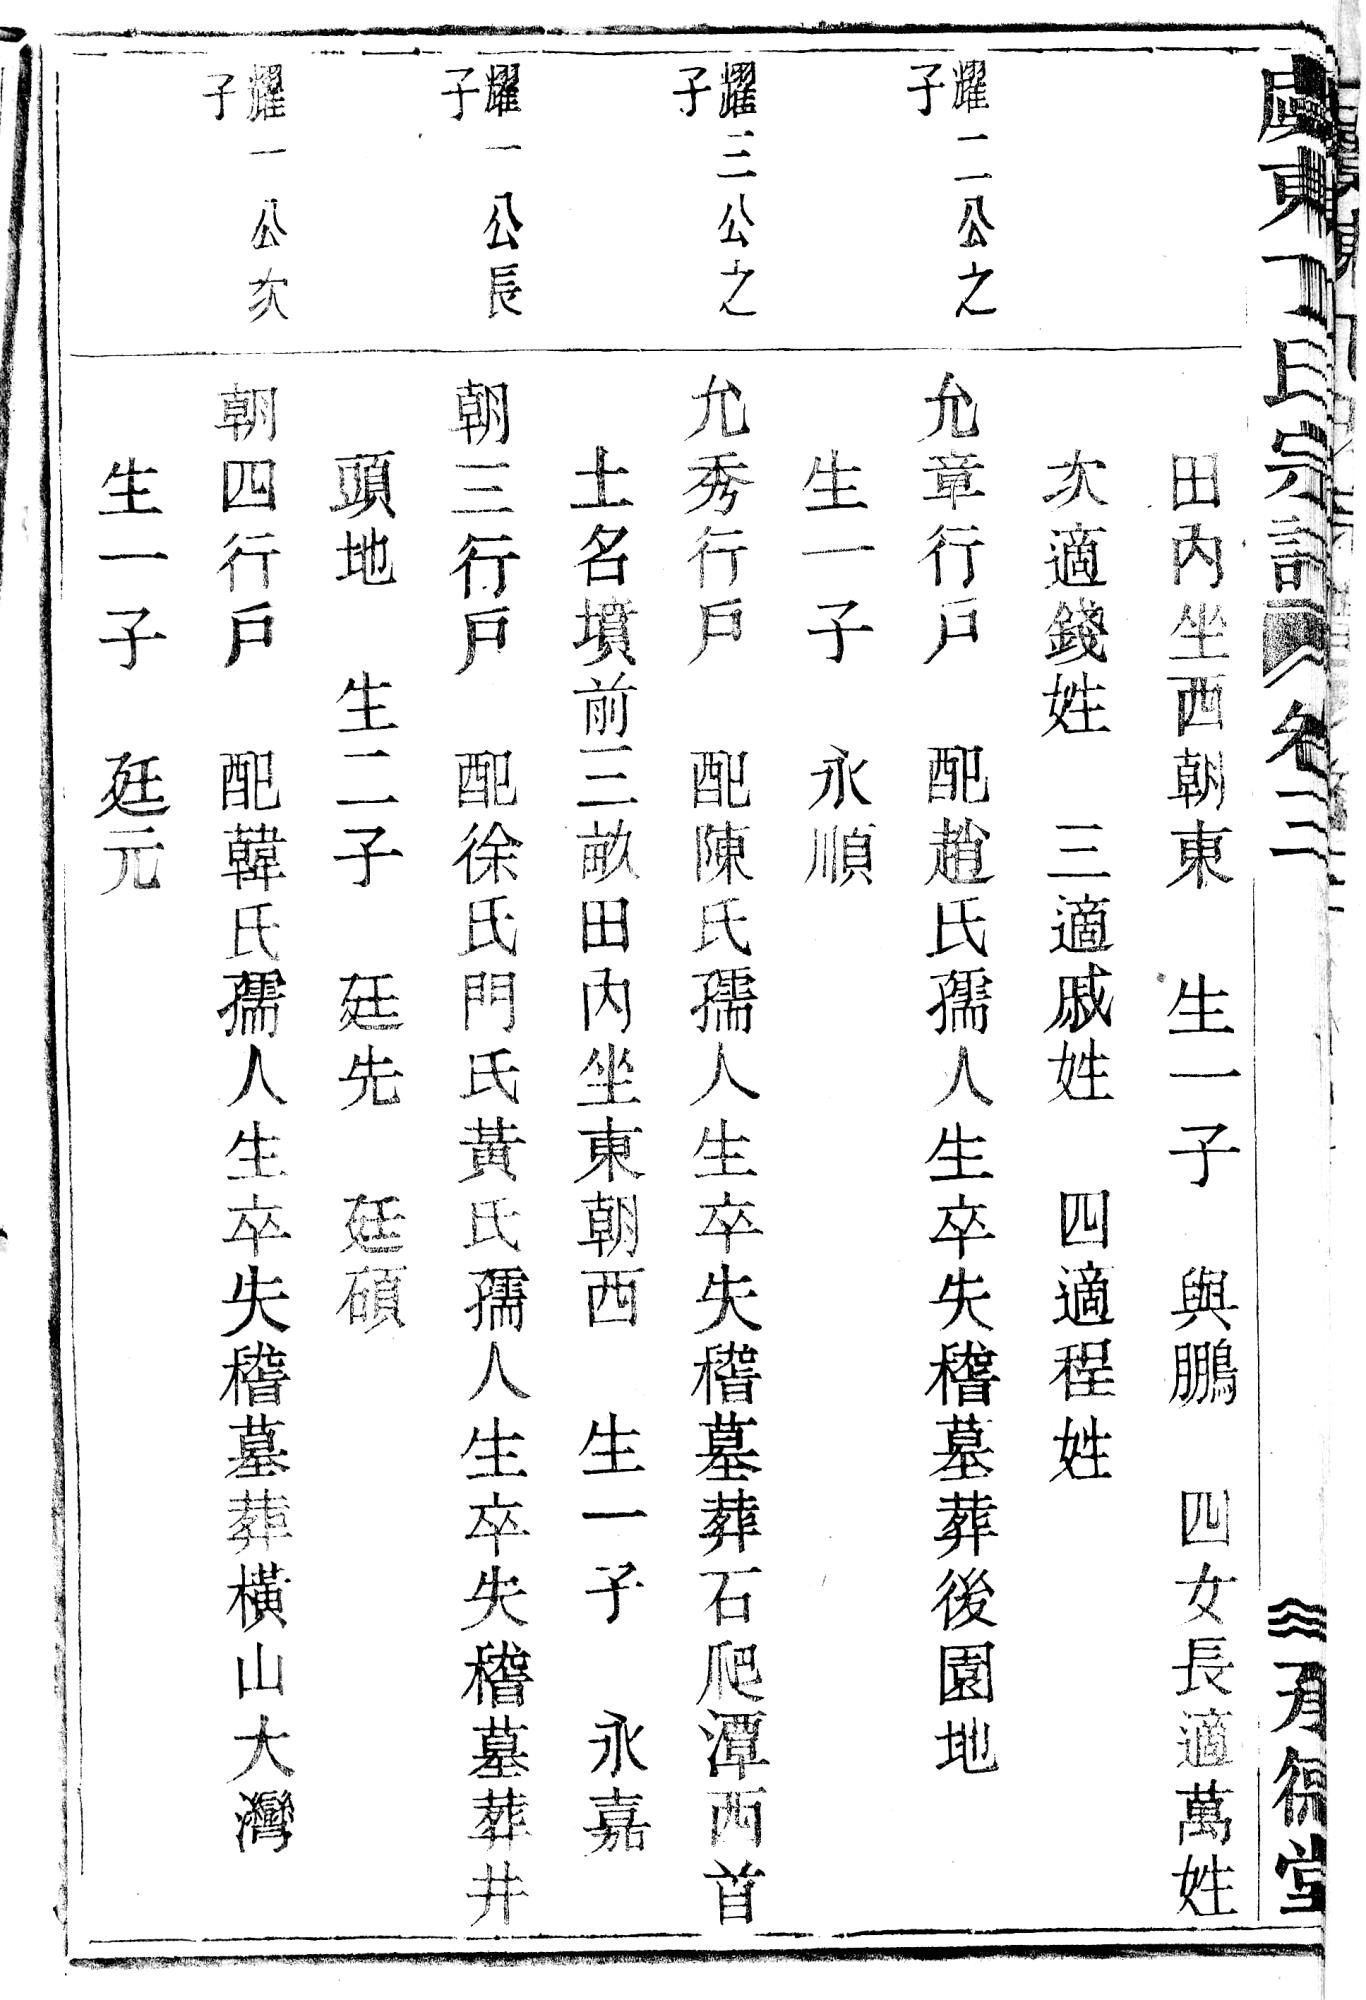 東丁氏宗譜 卷二 承德堂
田內坐西朝東 生一子 與鵬 四女長適萬姓
次適錢姓 三適戚姓 四適程姓
耀二公之子
允章行戶 配趙氏孺人生卒失稽墓葬後園地
生一子 永順
耀三公之子
允秀行戶 配陳氏孺人生卒失稽墓葬石爬潭西首
土名墳前三畝田內坐東朝西 生一子 永嘉
耀一公長子
朝三行戶 配徐氏門氏黃氏孺人生卒失稽墓葬井
頭地 生二子 廷先 廷碩
耀一公次子
朝四行戶 配韓氏孺人生卒失稽墓葬橫山大灣
生一子 廷元